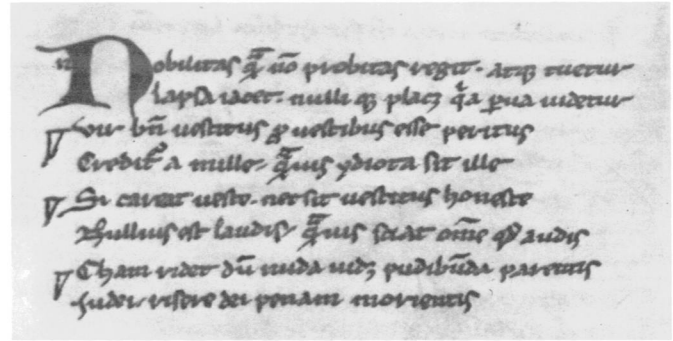 Nobilitas quā nō probitas regit. atq; tuetur
lapsa iacet. nulli q; placꝫ qͥa ꝑua uidetur
Vir bn̄ uestitus ꝓ uestibus esse peritus
Credit᷑ a mille. quāuis ydiota sit ille
Si careat ueste. nec sit uestitus honeste
Nullius est laudis. quāuis sciat om̄e qd̄ audis
Cham ridet dū nuda uidꝫ pudibūda parentis
Iudei risere dei penam morientis